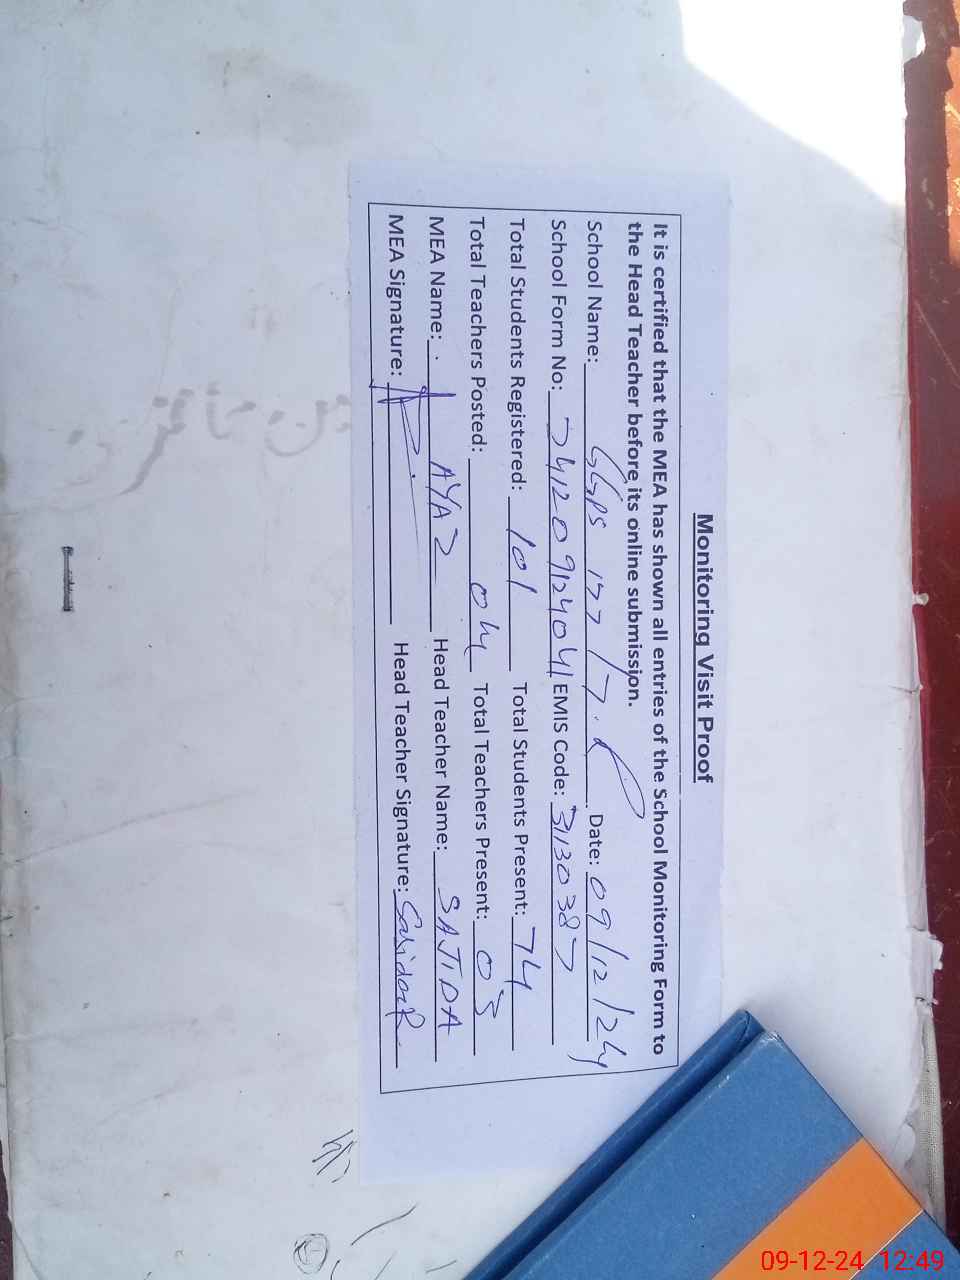 Monitoring Visit Proof
It is certified that the MEA has shown all entries of the School Monitoring Form to
the Head Teacher before its online submission.
School Name: GGPS 177/7.R Date: 09/12/24
School Form No: 741209124041 EMIS Code: 31130387
Total Students Registered: 101 Total Students Present: 74
Total Teachers Posted: 04 Total Teachers Present: 03
MEA Name: AYAZ Head Teacher Name: SAJIDA
MEA Signature: Head Teacher Signature:
09-12-24 12:49